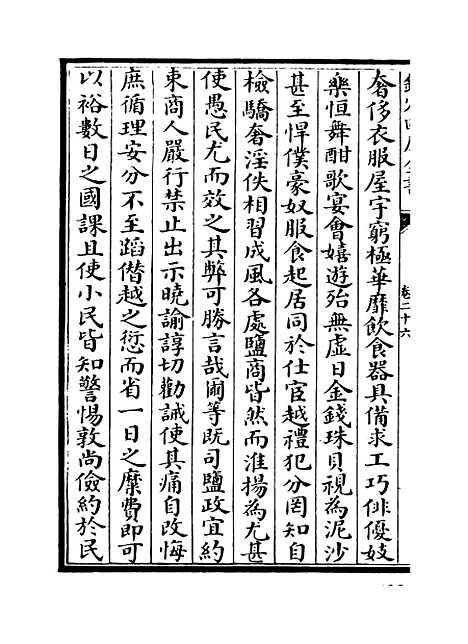 欽定四庫全書
卷二十六
奢侈衣服屋宇窮極華靡飲食器具備求工巧俳優妓
樂恒舞酣歌宴會嬉遊殆無虛日金錢珠貝視為泥沙
甚至悍僕豪奴服食起居同於仕宦越禮犯分罔知自
檢驕奢淫佚相習成風各處鹽商皆然而淮揚為尤甚
使愚民尤而效之其弊可勝言哉爾等既司鹽政宜約
束商人嚴行禁止出示曉諭諄切勸誡使其痛自改悔
庶循理安分不至蹈僭越之愆而省一日之糜費即可
以裕數日之國課且使小民皆知警惕敦尚儉約於民